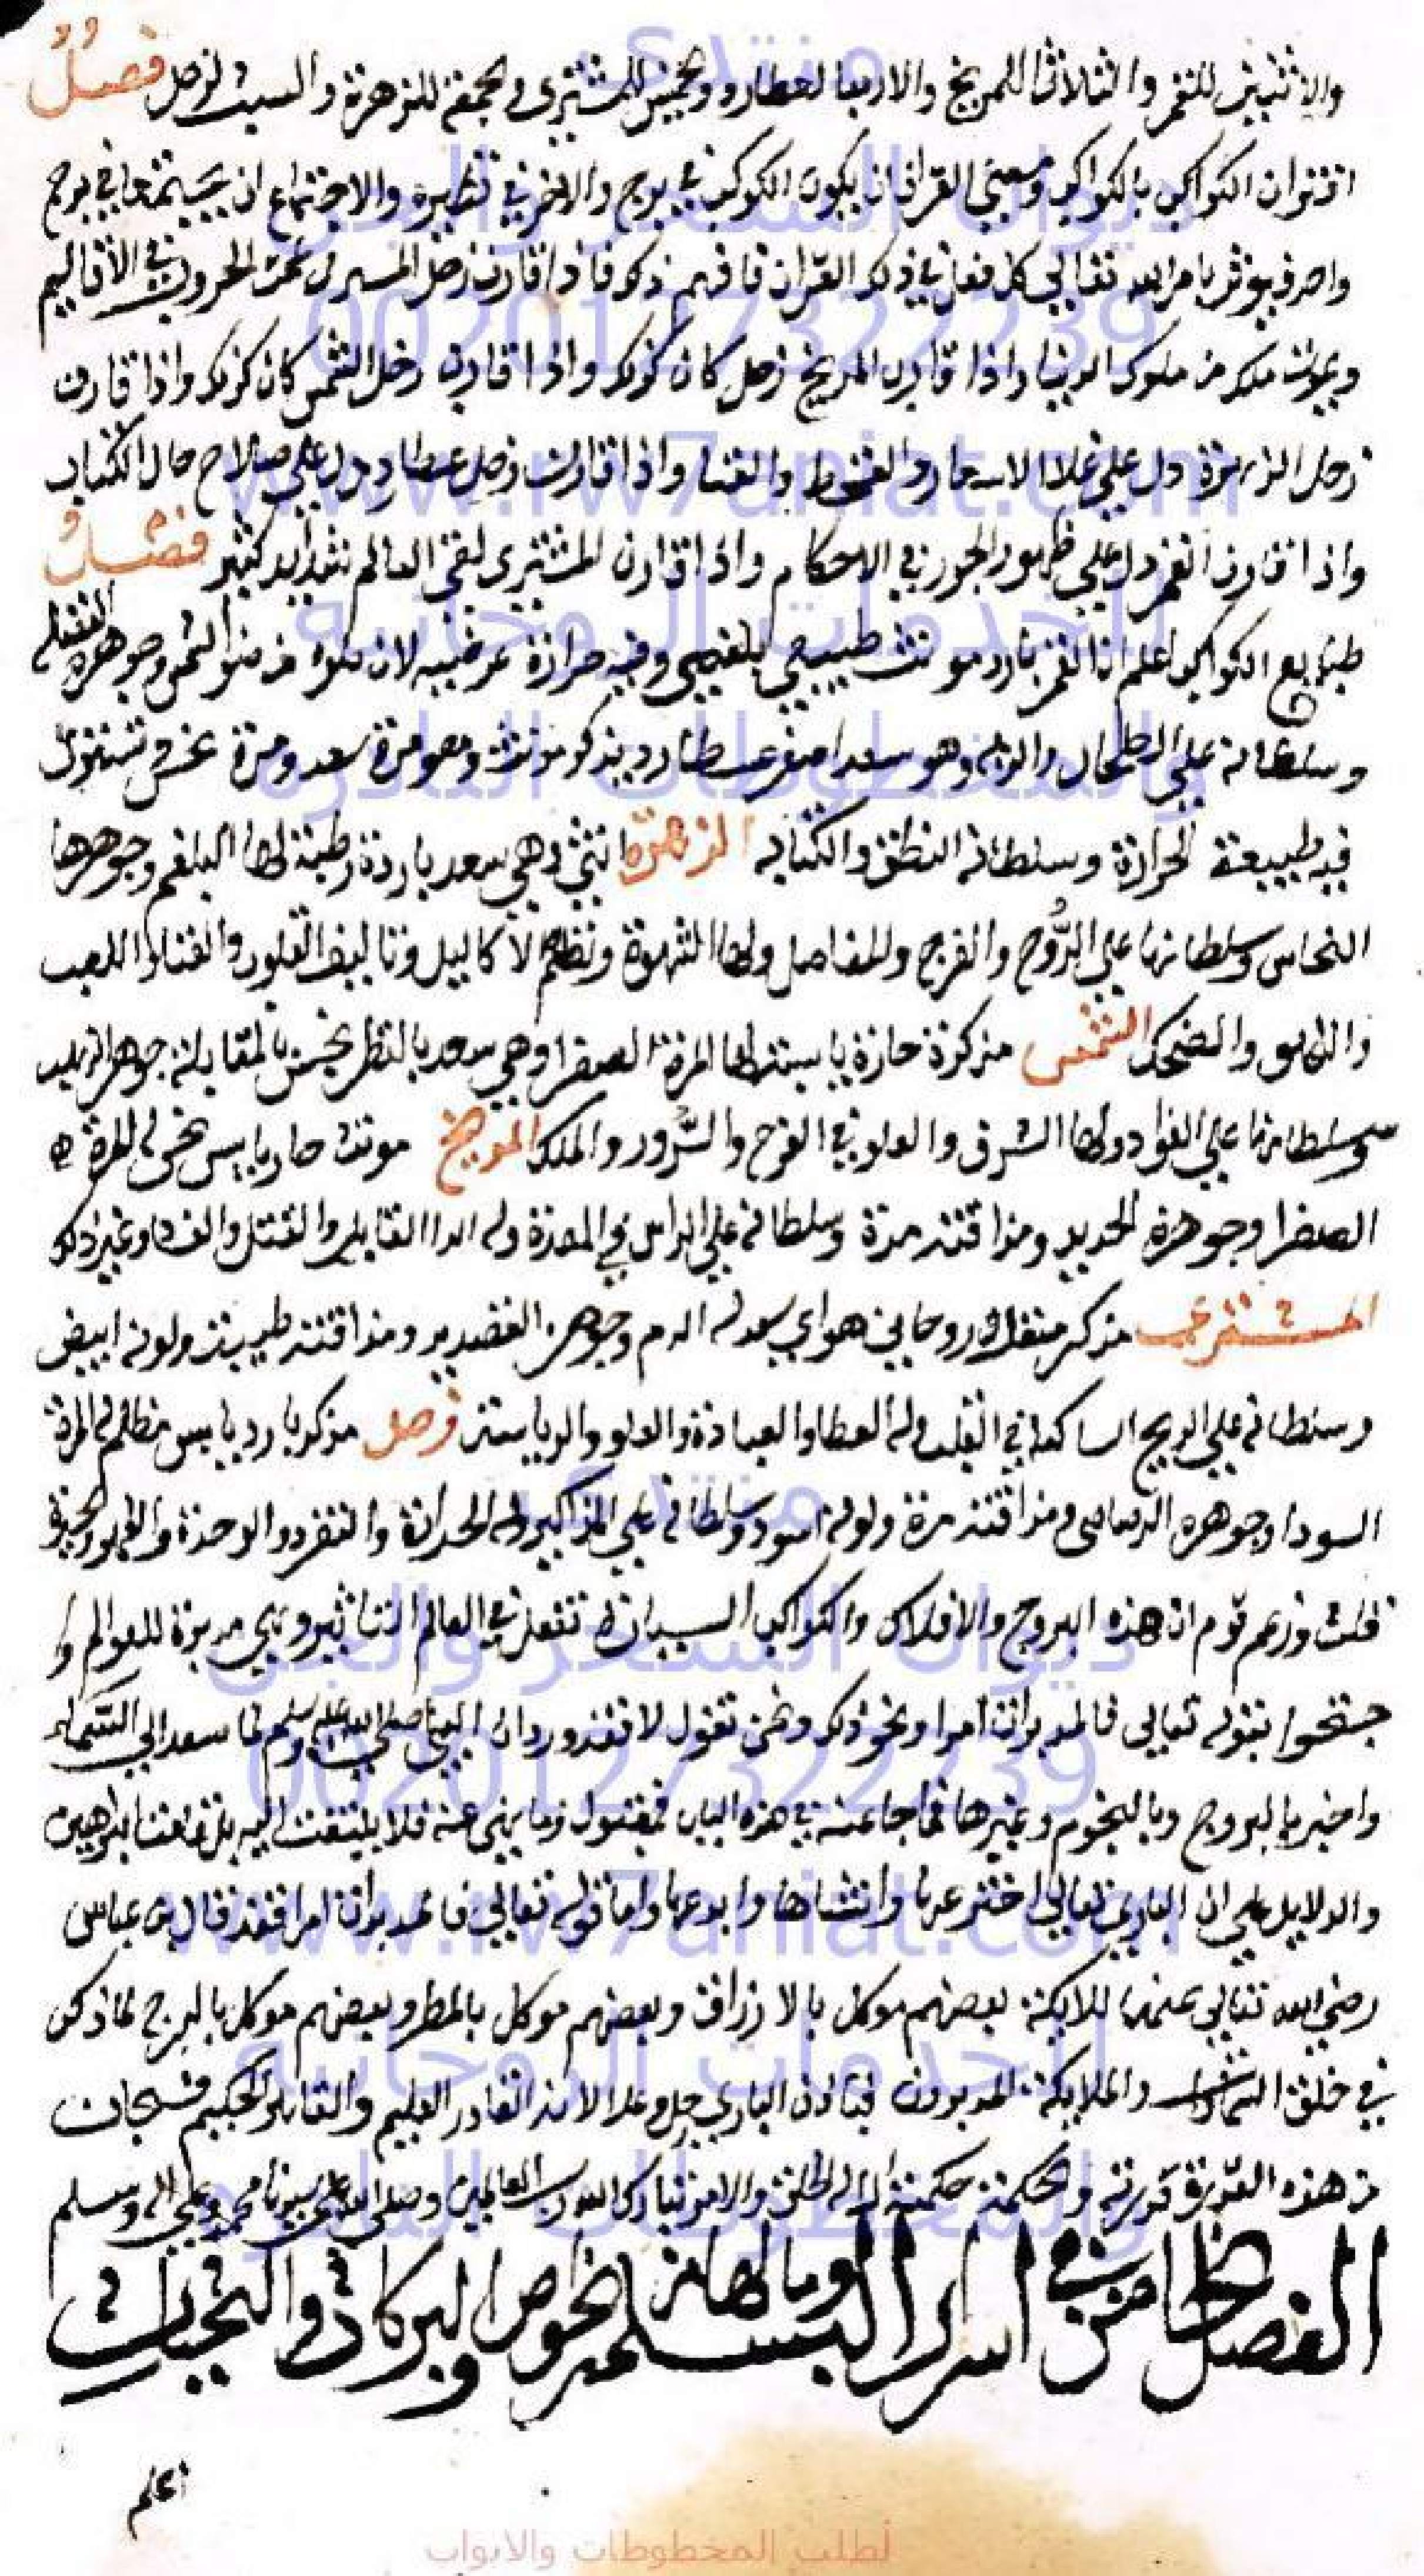 والاثنين للقمر والثلاثا للمريخ والاربعا لعطارد والخميس للمشتري والجمعة للزهرة والسبت لزحل فصل
اقتران الكواكب بالكواكب ومعني القران ان يكون الكوكب في برج والاخر في نظيره والاجتماع ان يجتمعا في برج
واحد فيوثر بامر الله تعالي كل فعل في ذلك القران فافهم ذلك فاذا قارن زحل المشتري الحروب في الاقاليم
ويموت ملك من ملوك الدنيا واذا قارن المريخ زحل كان كذلك واذا قارن زحل الشمس كان كذلك واذا قارن
زحل الزهرة دل علي غلا الاسعار والقحط والفنا واذا قارن زحل عطارد دل علي صلاح حال الكتاب
واذا قارن القمر دل علي ظهور الجور في الاحكام واذا قارن المشتري لقي العالم شدايد كثير فصل
طبايع الكواكب اعلم ان القمر بارد مونث طبيعي بلغمي وفيه حرارة عرضيه لان ضوه من ضو الشمس وجوهره الفضه
وسلطانه علي الطحال والريه وهو سعد اصغر عطارد يذكر مونث وهو مرة سعد ومرة نحس
فيه طبيعة الحرارة وسلطانه النطق والكتابه الزهرة انثي وهي سعد باردة رطبة لها البلغم وجوهرها
النحاس وسلطانها علي الرُّوح والفرج والمفاصل ولها الشهوة ونظم الاكاليل وتاليف القلوب والغناء واللعب
واللهو والضحك الشمس مذكرة حارة يابسة لها المرة الصفرا وهي سعد بالنظر نحس بالمقابلة جوهر
وسلطانها علي الفواد ولها الشرف والعلو في الفرح والسُّرور والملك المريخ مونث حار يابس نحس له المرة
الصفرا وجوهره الحديد ومذاقته مرة وسلطانه علي الراس والمعدة وله والقتل وغير ذلك
المشتري مذكر روحاني هواي سعد له الدم وجوهره القصدير ومذاقته طيبة ولونه ابيض
وسلطانه علي الريح الساكنه في القلب وله العطا والعبادة والعلو والرياسة زحل مذكر بارد يابس مظلم له المرة
السودا وجوهره الرصاص ومذاقته مرة ولونه اسود وسلطانه علي المذاكير وله والتفرد والوحدة
قلت وزعم قوم ان هذه البروج والافلاك والكواكب السيارة تفعل في العالم التاثير وهي مدبرة للعوالم وا
حتجوا بقوله تعالي فالمدبرات امرا ونحو ذلك ونحن نقول لا فقد ورد ان النبي صلي الله عليه وسلم لما سعد الي السَّماء
واخبر بالبروج وبالنجوم وغيرها فما جا عنه في هذه الباب فمقبول وما ينهي عنه فلا يلتفت اليه البراهين
والدلايل علي ان الباري تعالي اخترعها وانشاها وابدعها واما قوله تعالي فالمدبرات امرا فقد قال بن عباس
رضي الله تعالي عنهما الملايكة بعضهم موكل بالارزاق وبعضهم موكل بالمطر وبعضهم موكل بالبرج لما ذكر
في خلق السموات والملايكة المدبرون باذن الباري جل وعلا الاله القادر العليم والحكيم فسبحان
من هذه القدرة قدرته والحكمة حكمته الا له الخلق والامر تبارك الله رب العالمين وصلي الله علي سيدنا محمد وعلي اله وسلم
الفصل الخامس في اسرار البسملة وما لها من الخواص والبركات
اعلم
منتدى
ديوان السحر والجن
00201127322239
www.rw7aniat.com
للخدمات الروحانية
والمخطوطات النادرة
منتدى
ديوان السحر والجن
00201127322239
www.rw7aniat.com
للخدمات الروحانية
والمخطوطات النادرة
لطلب المخطوطات والابواب